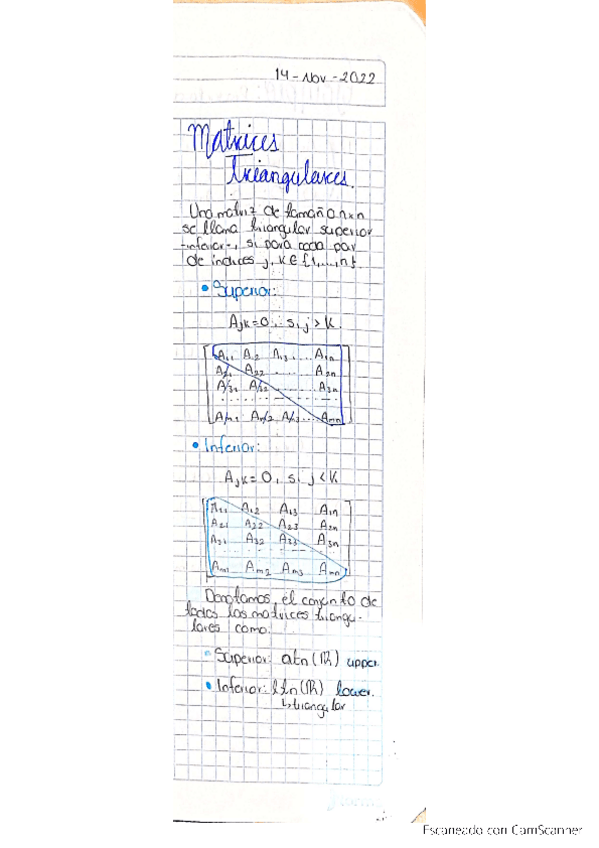 14-Nov-2022
Matrices
Triangulares.
Una matriz de tamaño nxn
se llama triangular superior
-inferior-, si para cada par
de índices j, k ∈ {1,...,n}
• Superior:
Ajk = 0, si j > k.
A11 A12 A13 ... A1n
A21 A22 .... A2n
A31 A32 ... A3n
An1 An2 An3 ... Ann
• Inferior:
Ajk = 0, si j < k
A11 A12 A13 A1n
A21 A22 A23 A2n
A31 A32 A33 A3n
Am1 Am2 Am3 Amn
Denotamos el conjunto de
todas las matrices triangu-
lares como:
• Superior: utn(ℝ) upper
• Inferior: ltn(ℝ) lower.
↳ triangular
Escaneado con CamScanner